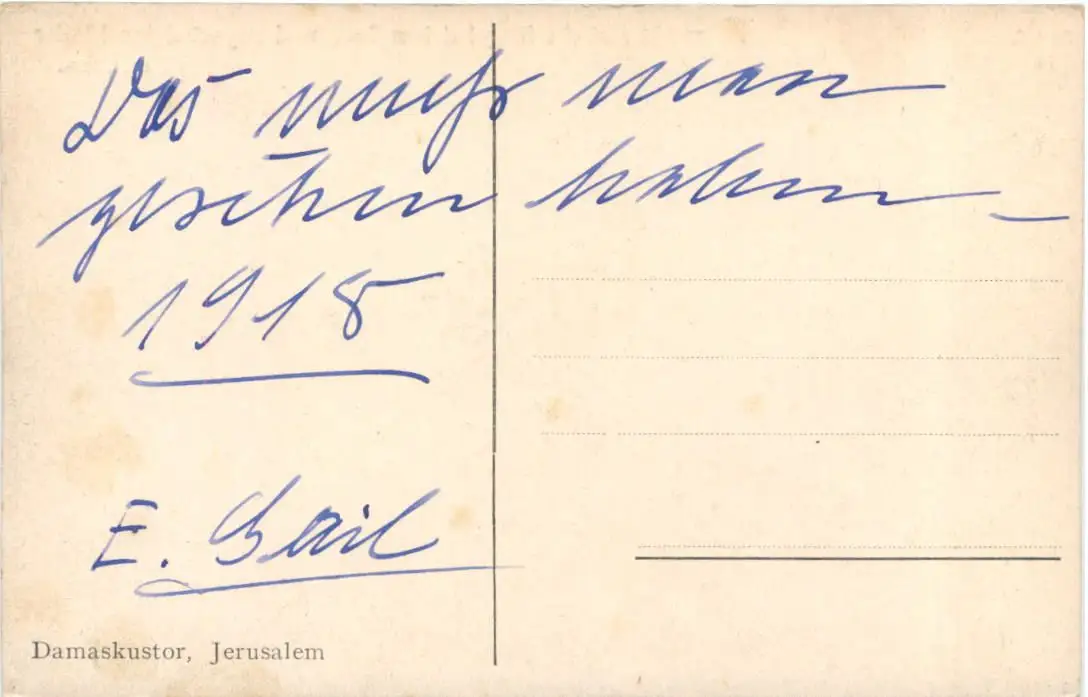 Das muß man
gesehen haben –
1918
E. Gail
Damaskustor, Jerusalem